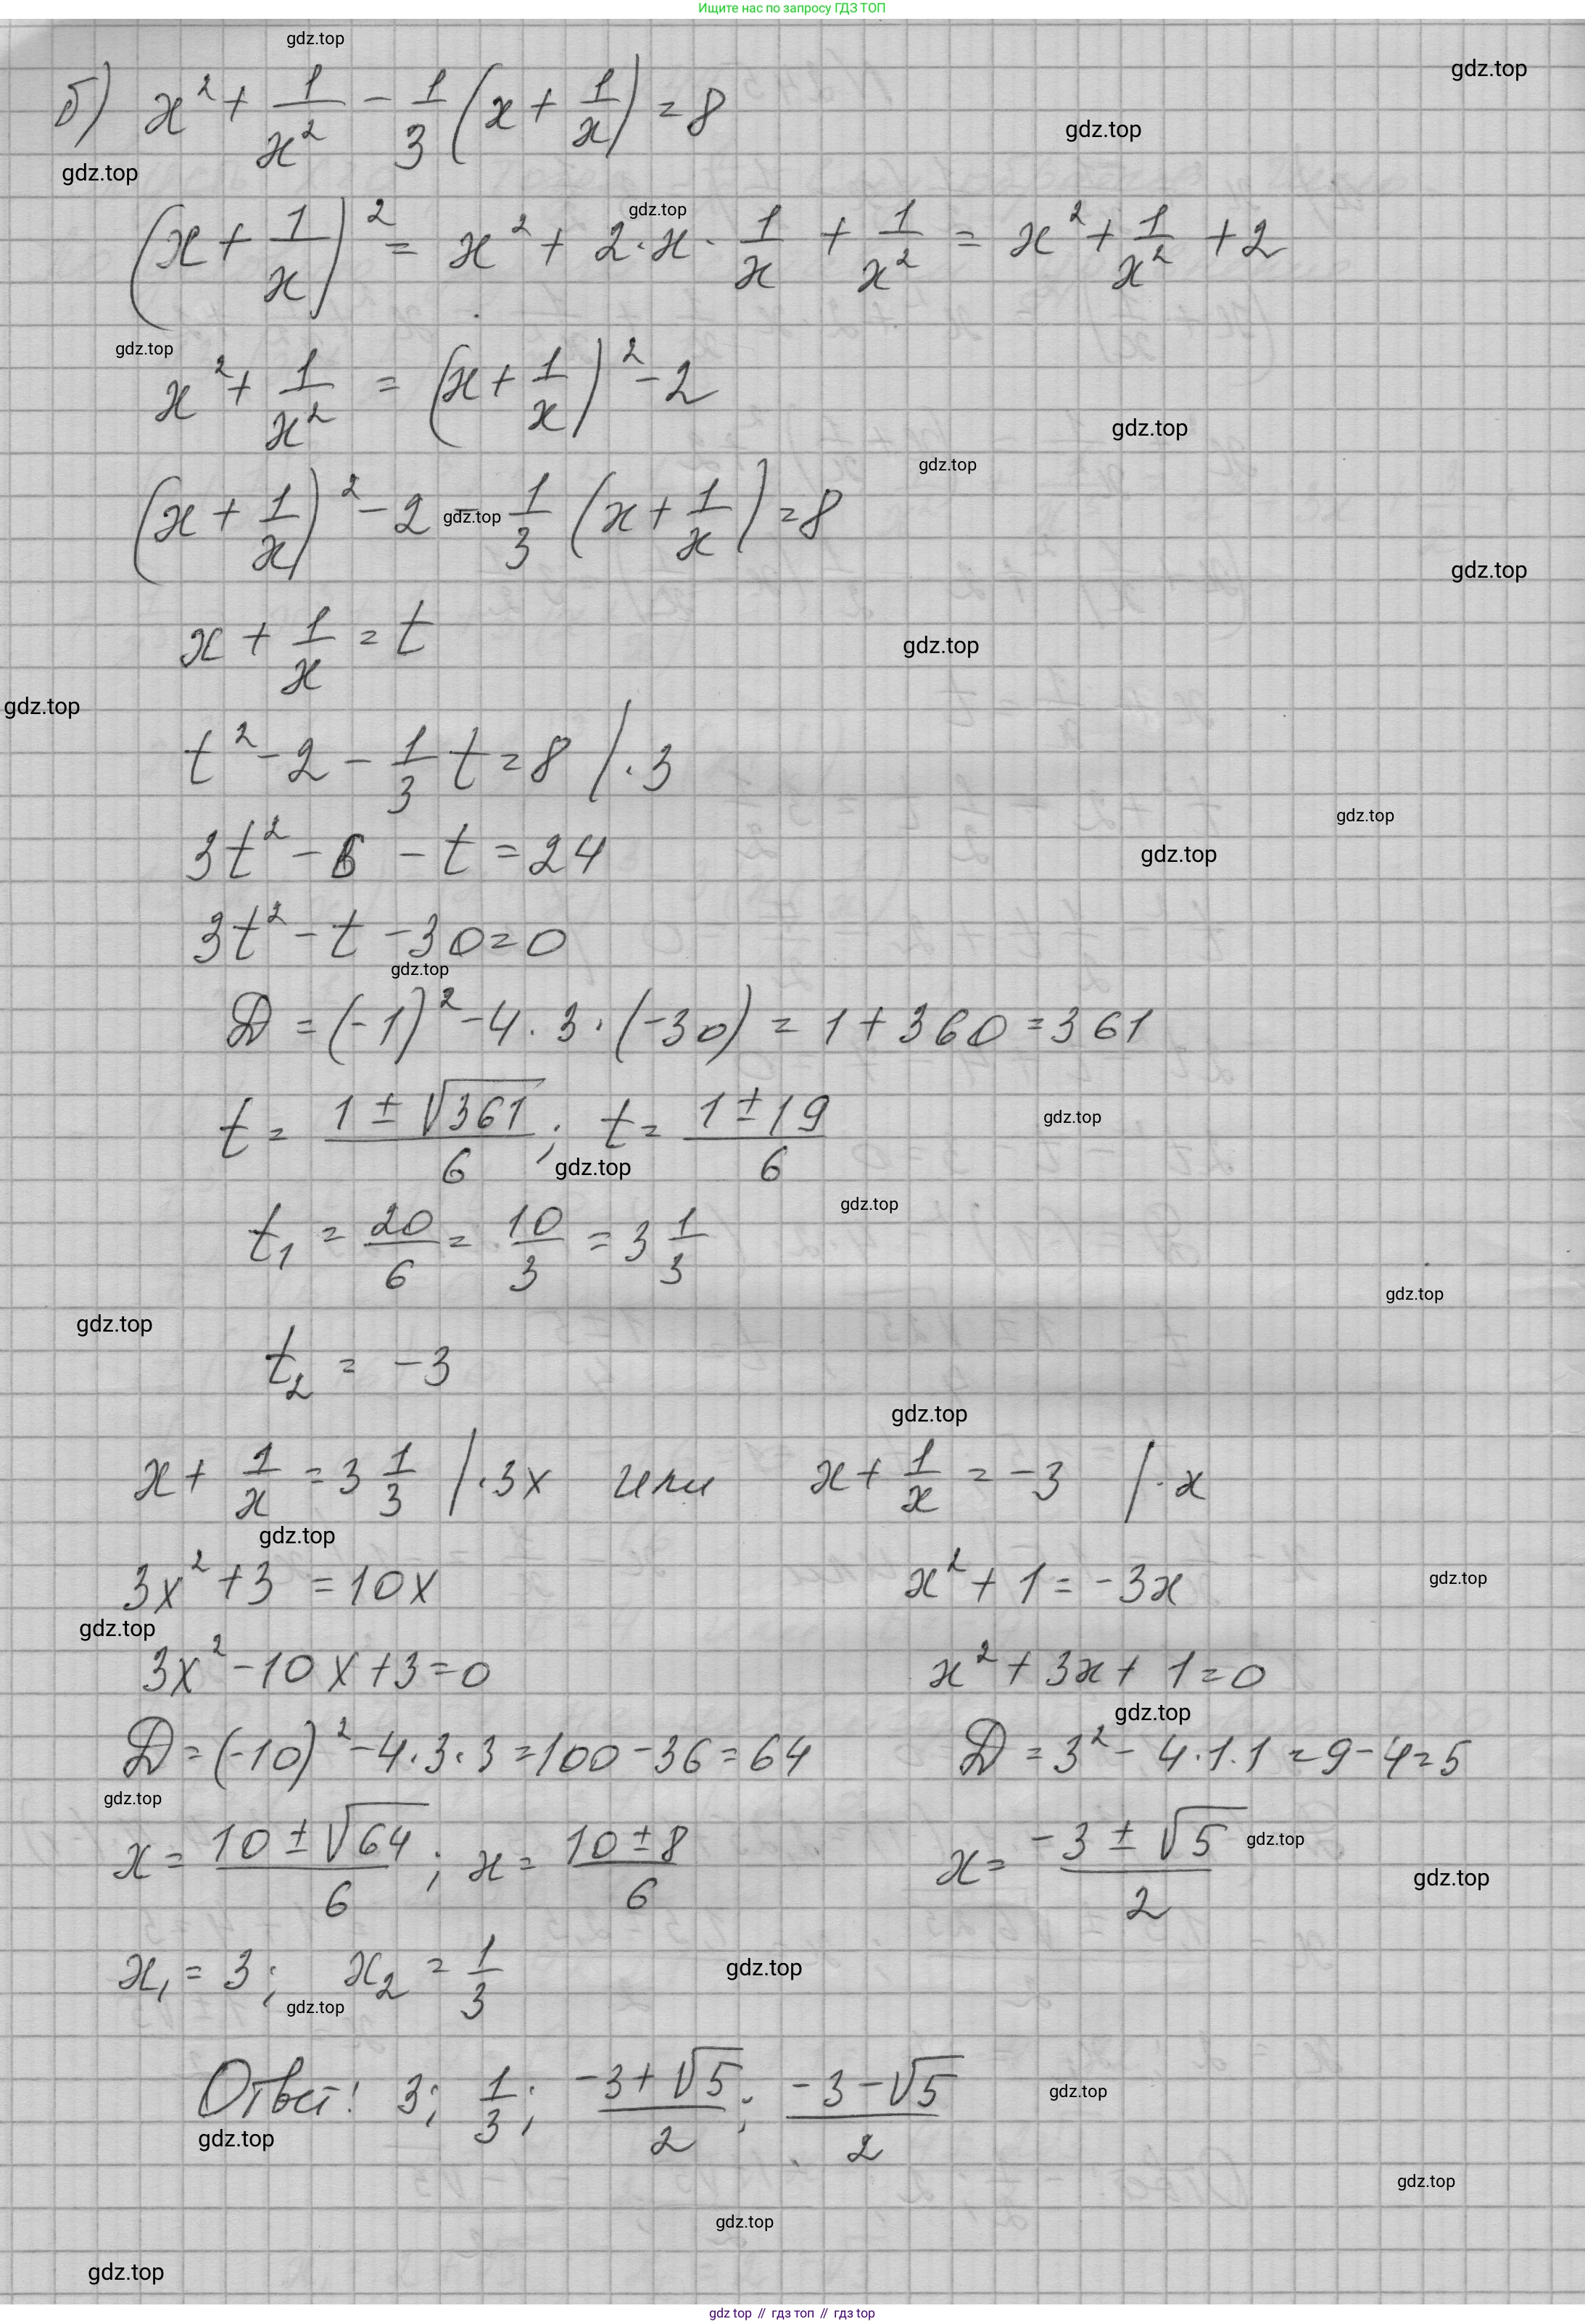 Ищите нас по запросу ГДЗ ТОП
gdz.top
gdz.top
б) x² + 1/x² - 1/3 (x + 1/x) = 8
gdz.top
gdz.top
gdz.top
(x + 1/x)² = x² + 2·x·1/x + 1/x² = x² + 1/x² + 2
gdz.top
x² + 1/x² = (x + 1/x)² - 2
gdz.top
gdz.top
(x + 1/x)² - 2 - 1/3 (x + 1/x) = 8
gdz.top
gdz.top
x + 1/x = t
gdz.top
gdz.top
t² - 2 - 1/3 t = 8 /·3
gdz.top
3t² - 6 - t = 24
gdz.top
3t² - t - 30 = 0
gdz.top
D = (-1)² - 4·3·(-30) = 1 + 360 = 361
t = (1 ± √361)/6; t = (1 ± 19)/6
gdz.top
gdz.top
gdz.top
t₁ = 20/6 = 10/3 = 3 1/3
gdz.top
gdz.top
t₂ = -3
gdz.top
x + 1/x = 3 1/3 /·3x или x + 1/x = -3 /·x
gdz.top
3x² + 3 = 10x x² + 1 = -3x
gdz.top
gdz.top
3x² - 10x + 3 = 0 x² + 3x + 1 = 0
gdz.top
D = (-10)² - 4·3·3 = 100 - 36 = 64 D = 3² - 4·1·1 = 9 - 4 = 5
gdz.top
x = (10 ± √64)/6; x = (10 ± 8)/6 x = (-3 ± √5)/2
gdz.top
gdz.top
x₁ = 3; x₂ = 1/3
gdz.top
gdz.top
Ответ: 3; 1/3; (-3 + √5)/2; (-3 - √5)/2
gdz.top
gdz.top
gdz.top
gdz.top
gdz.top
gdz top // гдз топ // гдз top